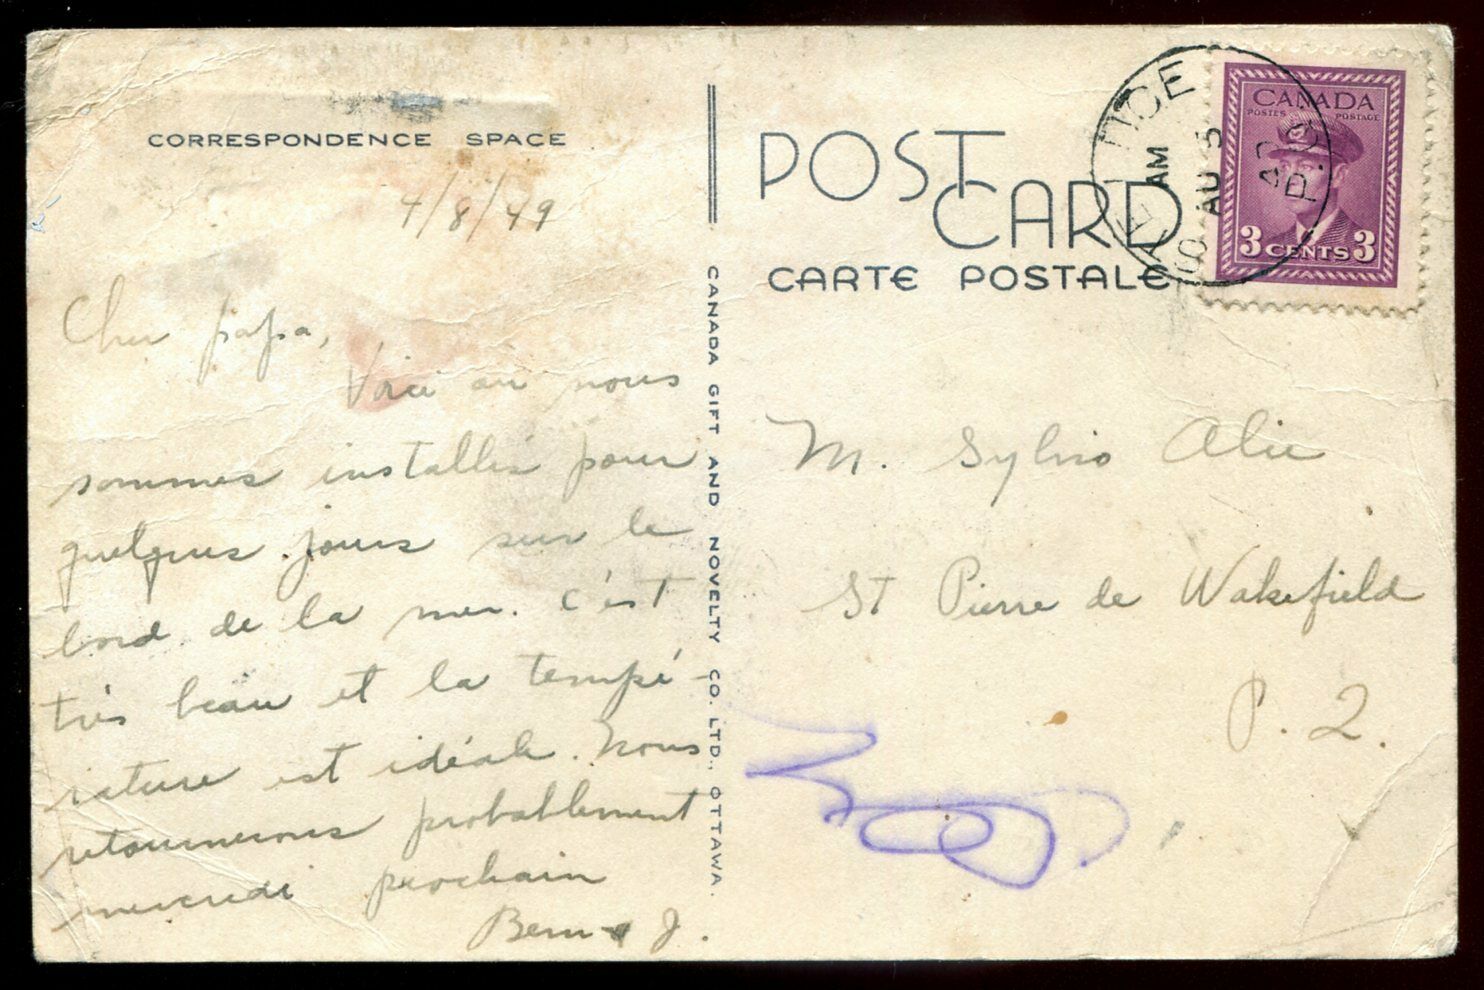 CORRESPONDENCE SPACE
4/8/49
Cher papa,
Voici où nous
sommes installés pour
quelques jours sur le
bord de la mer. C'est
très beau et la tempé-
rature est idéale. Nous
retournerons probablement
mercredi prochain
J.
CANADA GIFT AND NOVELTY CO. LTD., OTTAWA.
POST
CARD
CARTE POSTALE
AM
AU 5
P.Q.
CANADA
POSTES POSTAGE
3 CENTS 3
M. Sylvio Alie
St Pierre de Wakefield
P. Q.